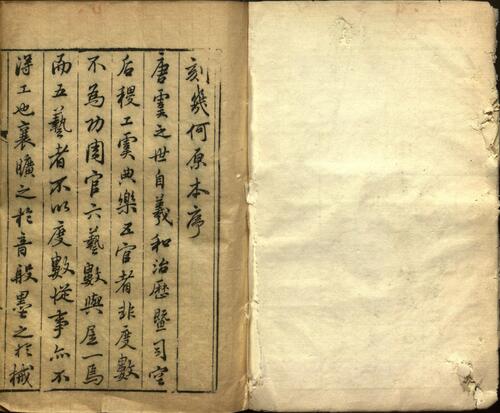 刻幾何原本序
唐虞之世自羲和治曆暨司空
后稷工虞典樂五官者非度數
不為功周官六藝數與居一焉
而五藝者不以度數從事亦不
得工也襄曠之於音般墨之於械